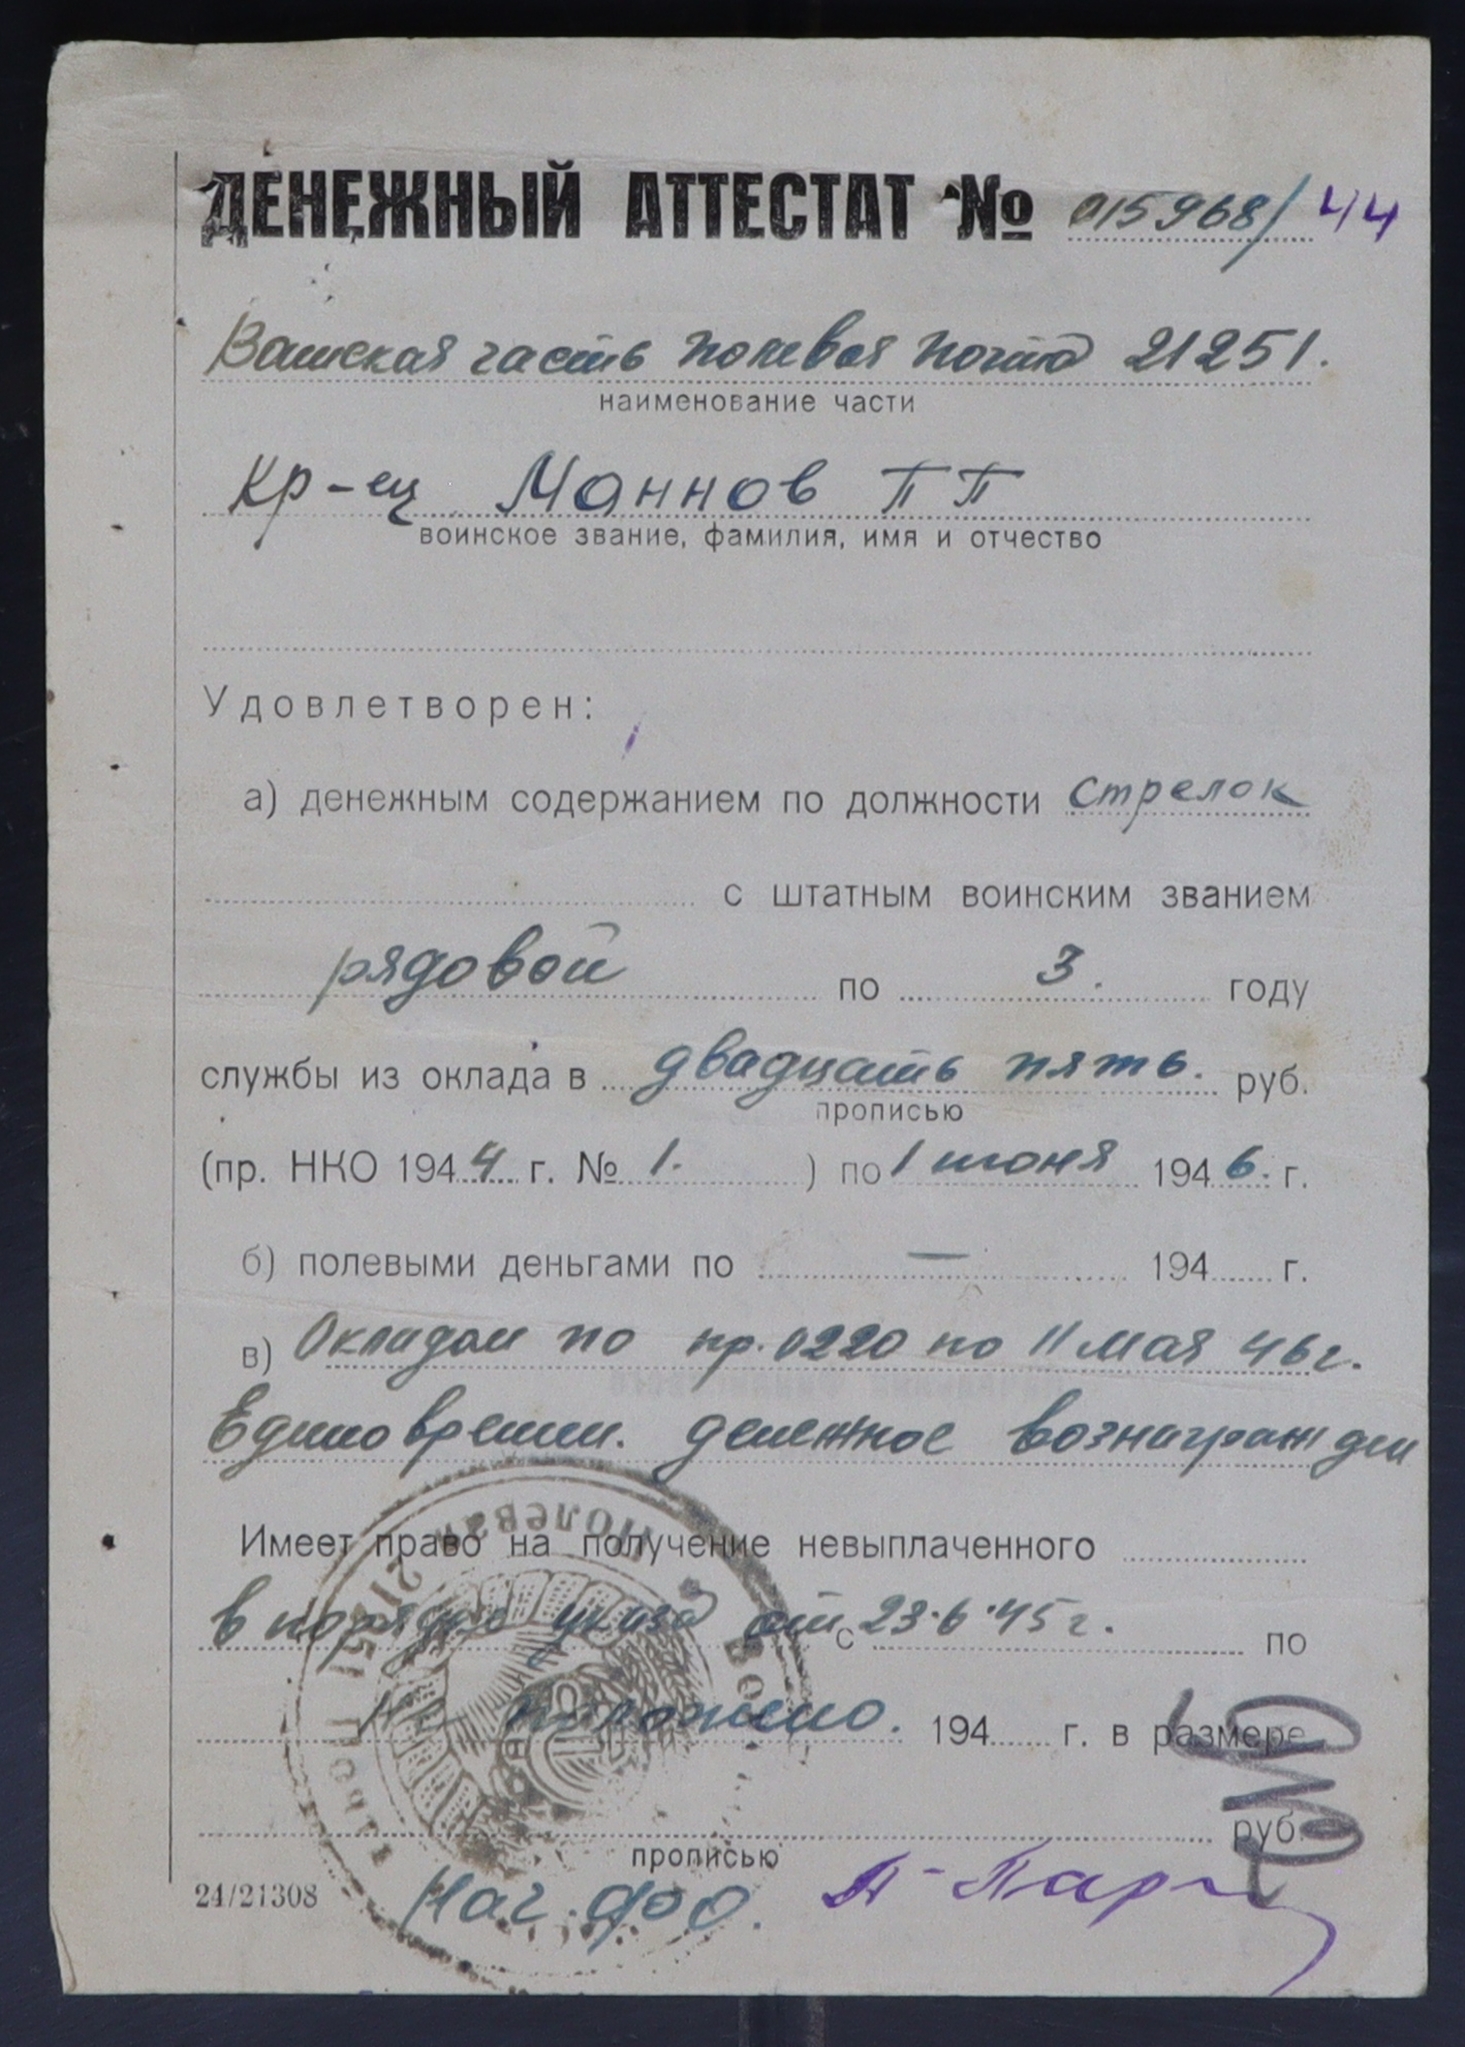 ДЕНЕЖНЫЙ АТТЕСТАТ № 015968/44
Воинская часть полевая почта 21251.
наименование части
Кр-ец Маннов П П
воинское звание, фамилия, имя и отчество
Удовлетворен:
а) денежным содержанием по должности стрелок
с штатным воинским званием
рядовой по 3. году
службы из оклада в двадцать пять. руб.
прописью
(пр. НКО 1944 г. № 1. ) по 1 июня 1946. г.
б) полевыми деньгами по — 194 г.
в) Окладом по пр. 0220 по 11 мая 46 г.
Единовремен. денежное вознагражден
Имеет право на получение невыплаченного
в порядке указа от с 23.6.45 г. по
положено. 194 г. в размере
руб.
прописью
24/21308 Нач. фо
Полевая
21251